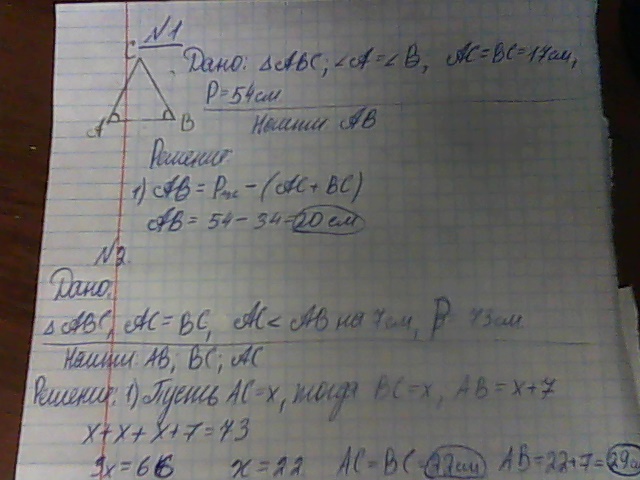 N1
C
Дано: △ABC; ∠A=∠B, AC=BC=17см,
P=54см
A B
Найти AB
Решение:
1) AB = P - (AC + BC)
AB = 54 - 34 = 20 см
N2.
Дано:
△ABC, AC = BC, AC < AB на 7см, P 73см
Найти AB; BC; AC
Решение: 1) Пусть AC=x, тогда BC=x, AB=x+7
x+x+x+7=73
3x=66 x=22 AC=BC=22см AB=22+7=29см